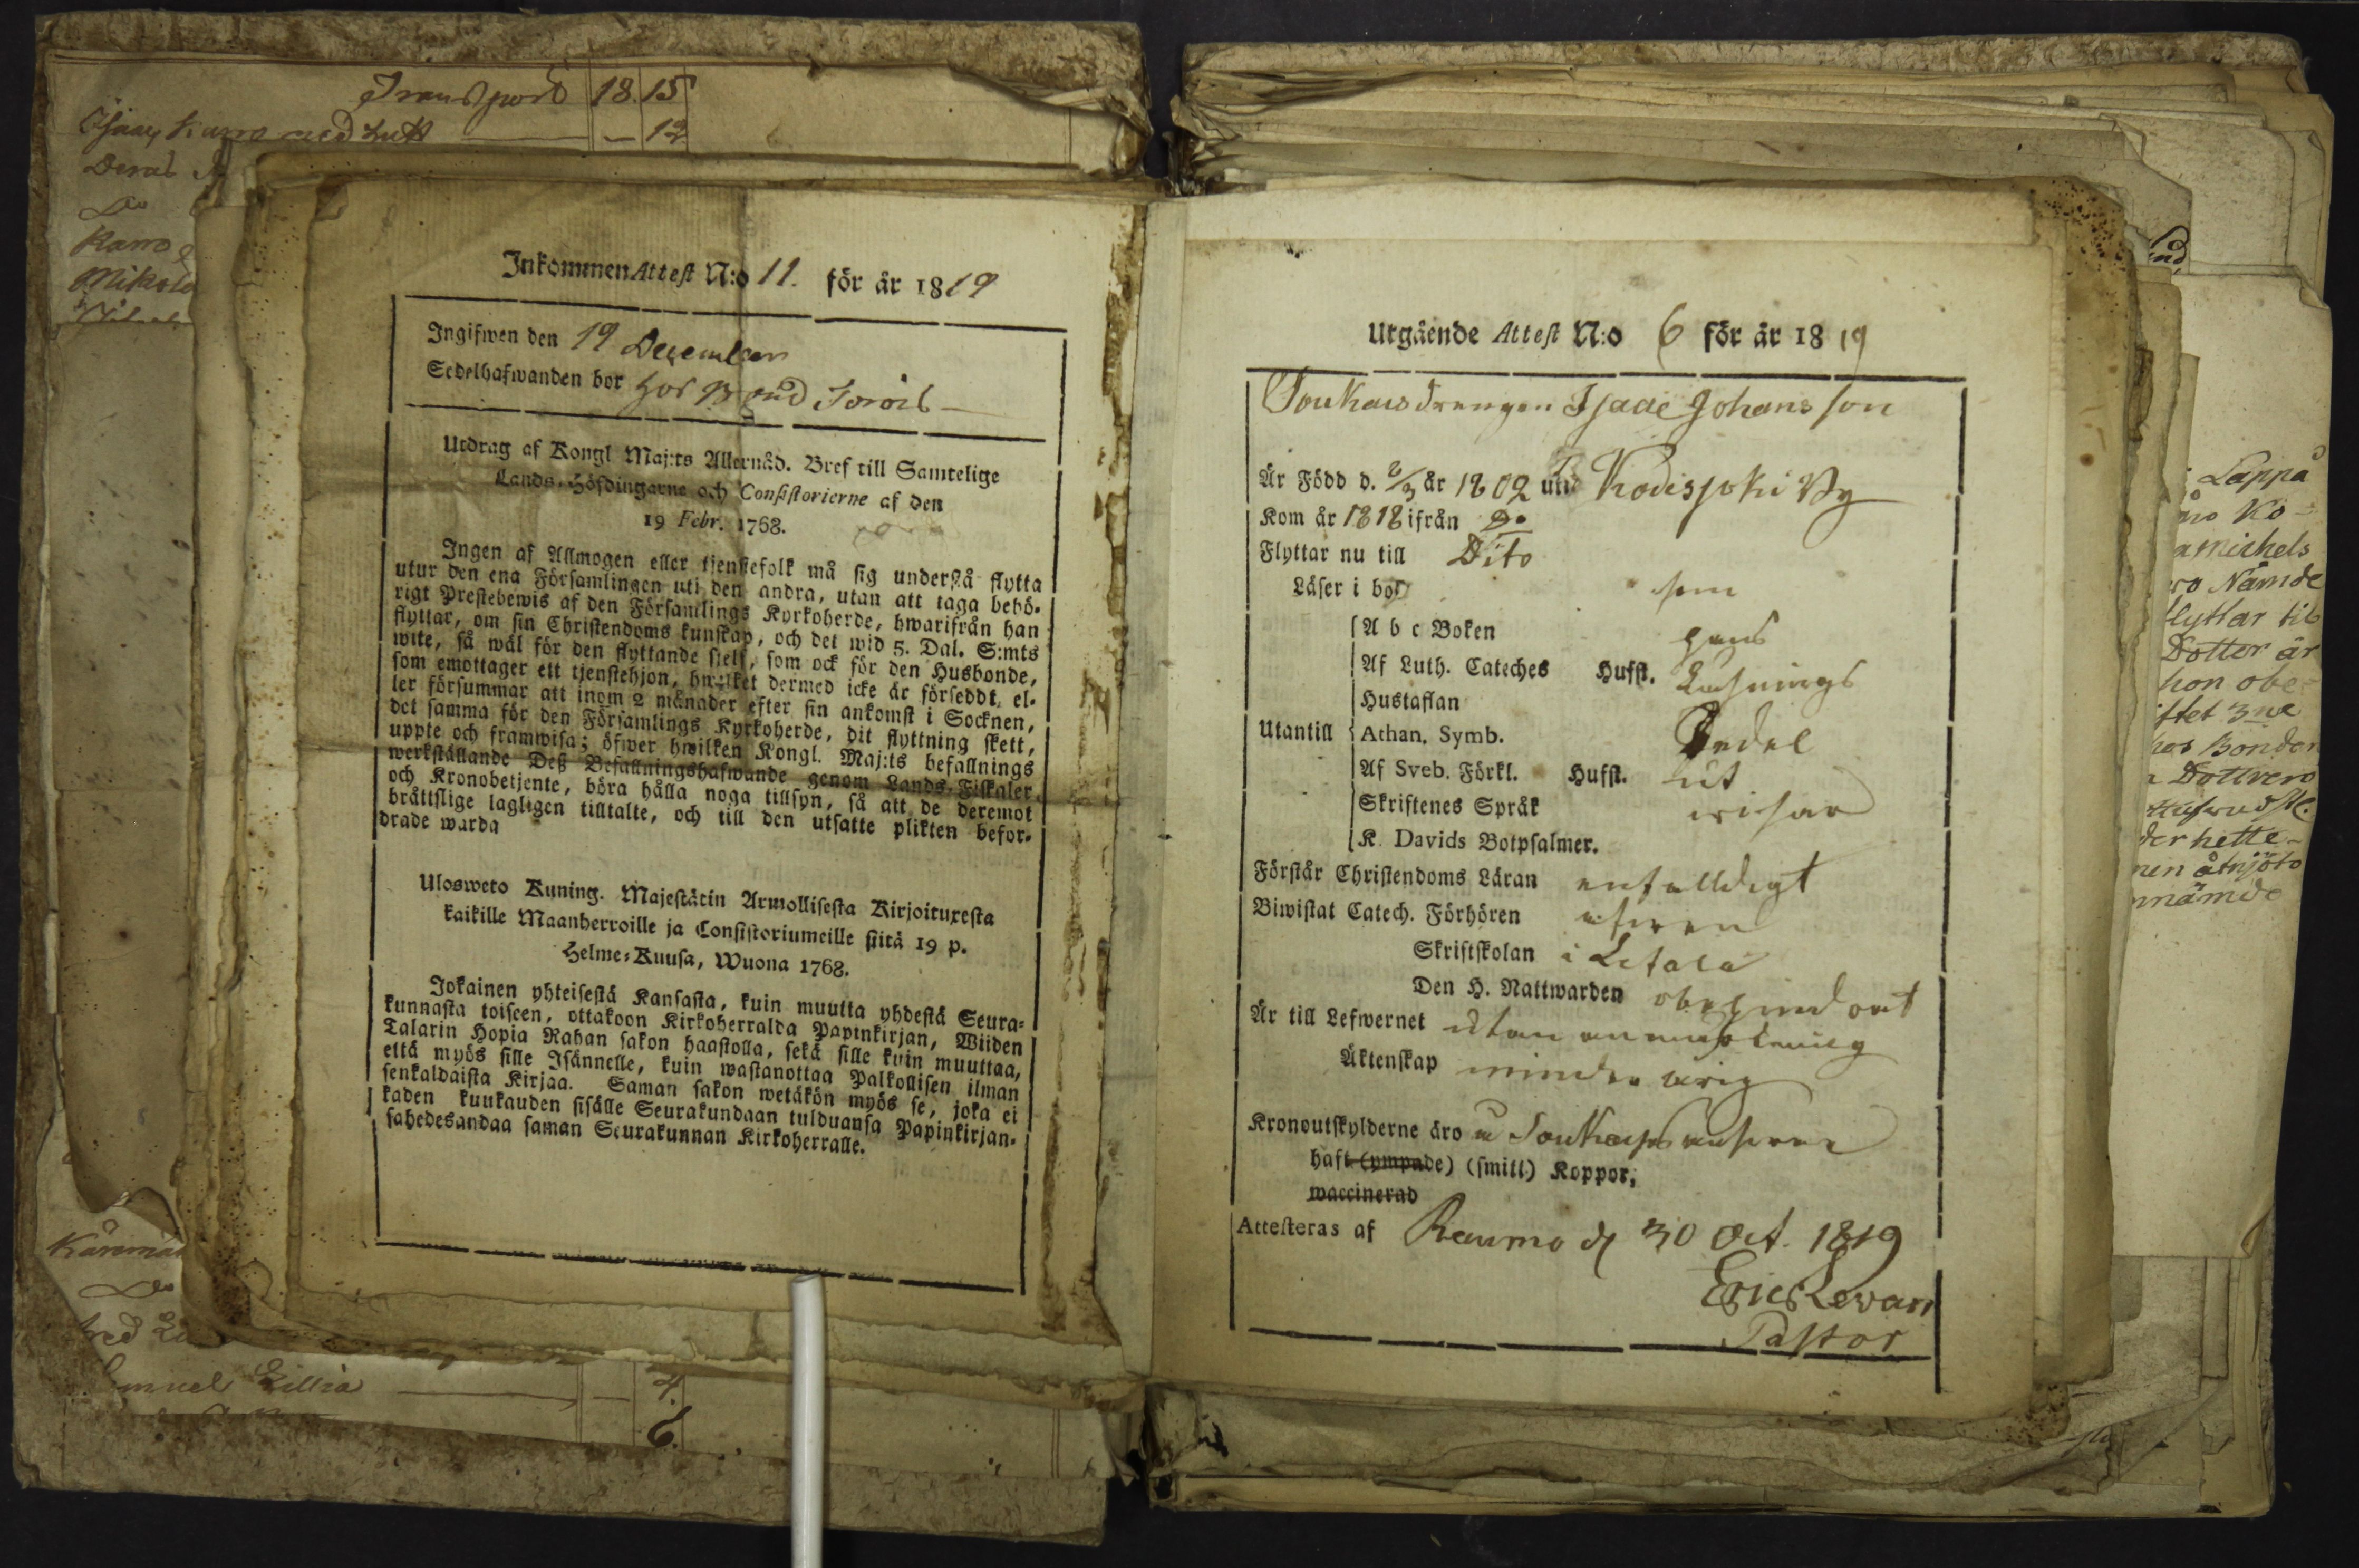 Transport 18. 15
Karro med hust — 12
Deras
Do
Karro
Mikola
Inkommen Attest N:o 11. för år 1819
Ingifwen den 19 December
Sedelhafwanden bor hos
Utdrag af Kongl Maj:ts Allernåd. Bref till Samtelige
Lands-Höfdingarne och Consistorierne af den
19 Febr. 1768.
Ingen af Allmogen eller tjenstefolk må sig understå flytta
utur den ena Församlingen uti den andra, utan att taga behö-
rigt Prestebewis af den Församlings Kyrkoherde, hwarifrån han
flyttar, om sin Christendoms kunskap, och det wid 5. Dal. S:mts
wite, så wäl för den flyttande sjelf, som ock för den Husbonde,
som emottager ett tjenstehjon, hwilket dermed icke är försedt, el-
ler försummar att inom 2 månader efter sin ankomst i Socknen,
det samma för den Församlings Kyrkoherde, dit flyttning skett,
uppte och framwisa; öfwer hwilken Kongl. Maj:ts befallnings
werkställande Deß Befallningshafwande genom Lands-Fiskaler
och Kronobetjente, böra hålla noga tillsyn, så att de deremot
bråttslige lagligen tilltalte, och till den utsatte plikten befor-
drade warda
Ulosweto Kuning. Majestätin Armollisesta Kirjoituxesta
kaikille Maanherroille ja Consistoriumeille siitä 19 p.
Helme-Kuusa, Wuona 1768.
Jokainen yhteisestä Kansasta, kuin muutta yhdestä Seura-
kunnasta toiseen, ottakoon Kirkoherralda Papinkirjan, Wiiden
Talarin Hopia Rahan sakon haastolla, sekä sille kuin muuttaa,
että myös sille Isännelle, kuin wastanottaa Palkollisen ilman
senkaldaista Kirjaa. Saman sakon wetäkön myös se, joka ei
kaden kuukauden sisälle Seurakundaan tulduansa Papinkirjan-
sahedesandaa saman Seurakunnan Kirkoherralle.
Do
Lillia — 4.
6.
Utgående Attest N:o 6 för år 1819
Soukaisdrengen Isaac Johansson
Är Född d. 2/3 år 1802 uti Kodisjoki By
Kom år 1818 ifrån Do
Flyttar nu till Dito
Läser i bok som
A b c Boken hans
Af Luth. Cateches Hufst. Läsnings
Hustaflan
Utantill Athan. Symb. Sedel
Af Sveb. Förkl. Hufst. ut
Skriftenes Språk wisar
K. Davids Botpsalmer.
Förstår Christendoms Läran enfalldigt
Biwistat Catech. Förhören äfwen
Skriftskolan i Letala
Den H. Nattwarden obegindat
Är till Lefwernet utan anmärkning
Äktenskap minderårig
Kronoutskylderne äro
haft (ympade) (smitt) Koppor,
waccinerad
Attesteras af Raumo d 30 Oct. 1819
Eric Levan
Pastor
Lappå
Ko-
Michels
Nämde
flyttar til
Dotter är
hon obe-
3ne
hos Bonden
Dottren
der hette-
åtnjöto
nämde